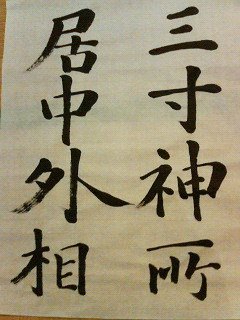 三寸神所
居中外相